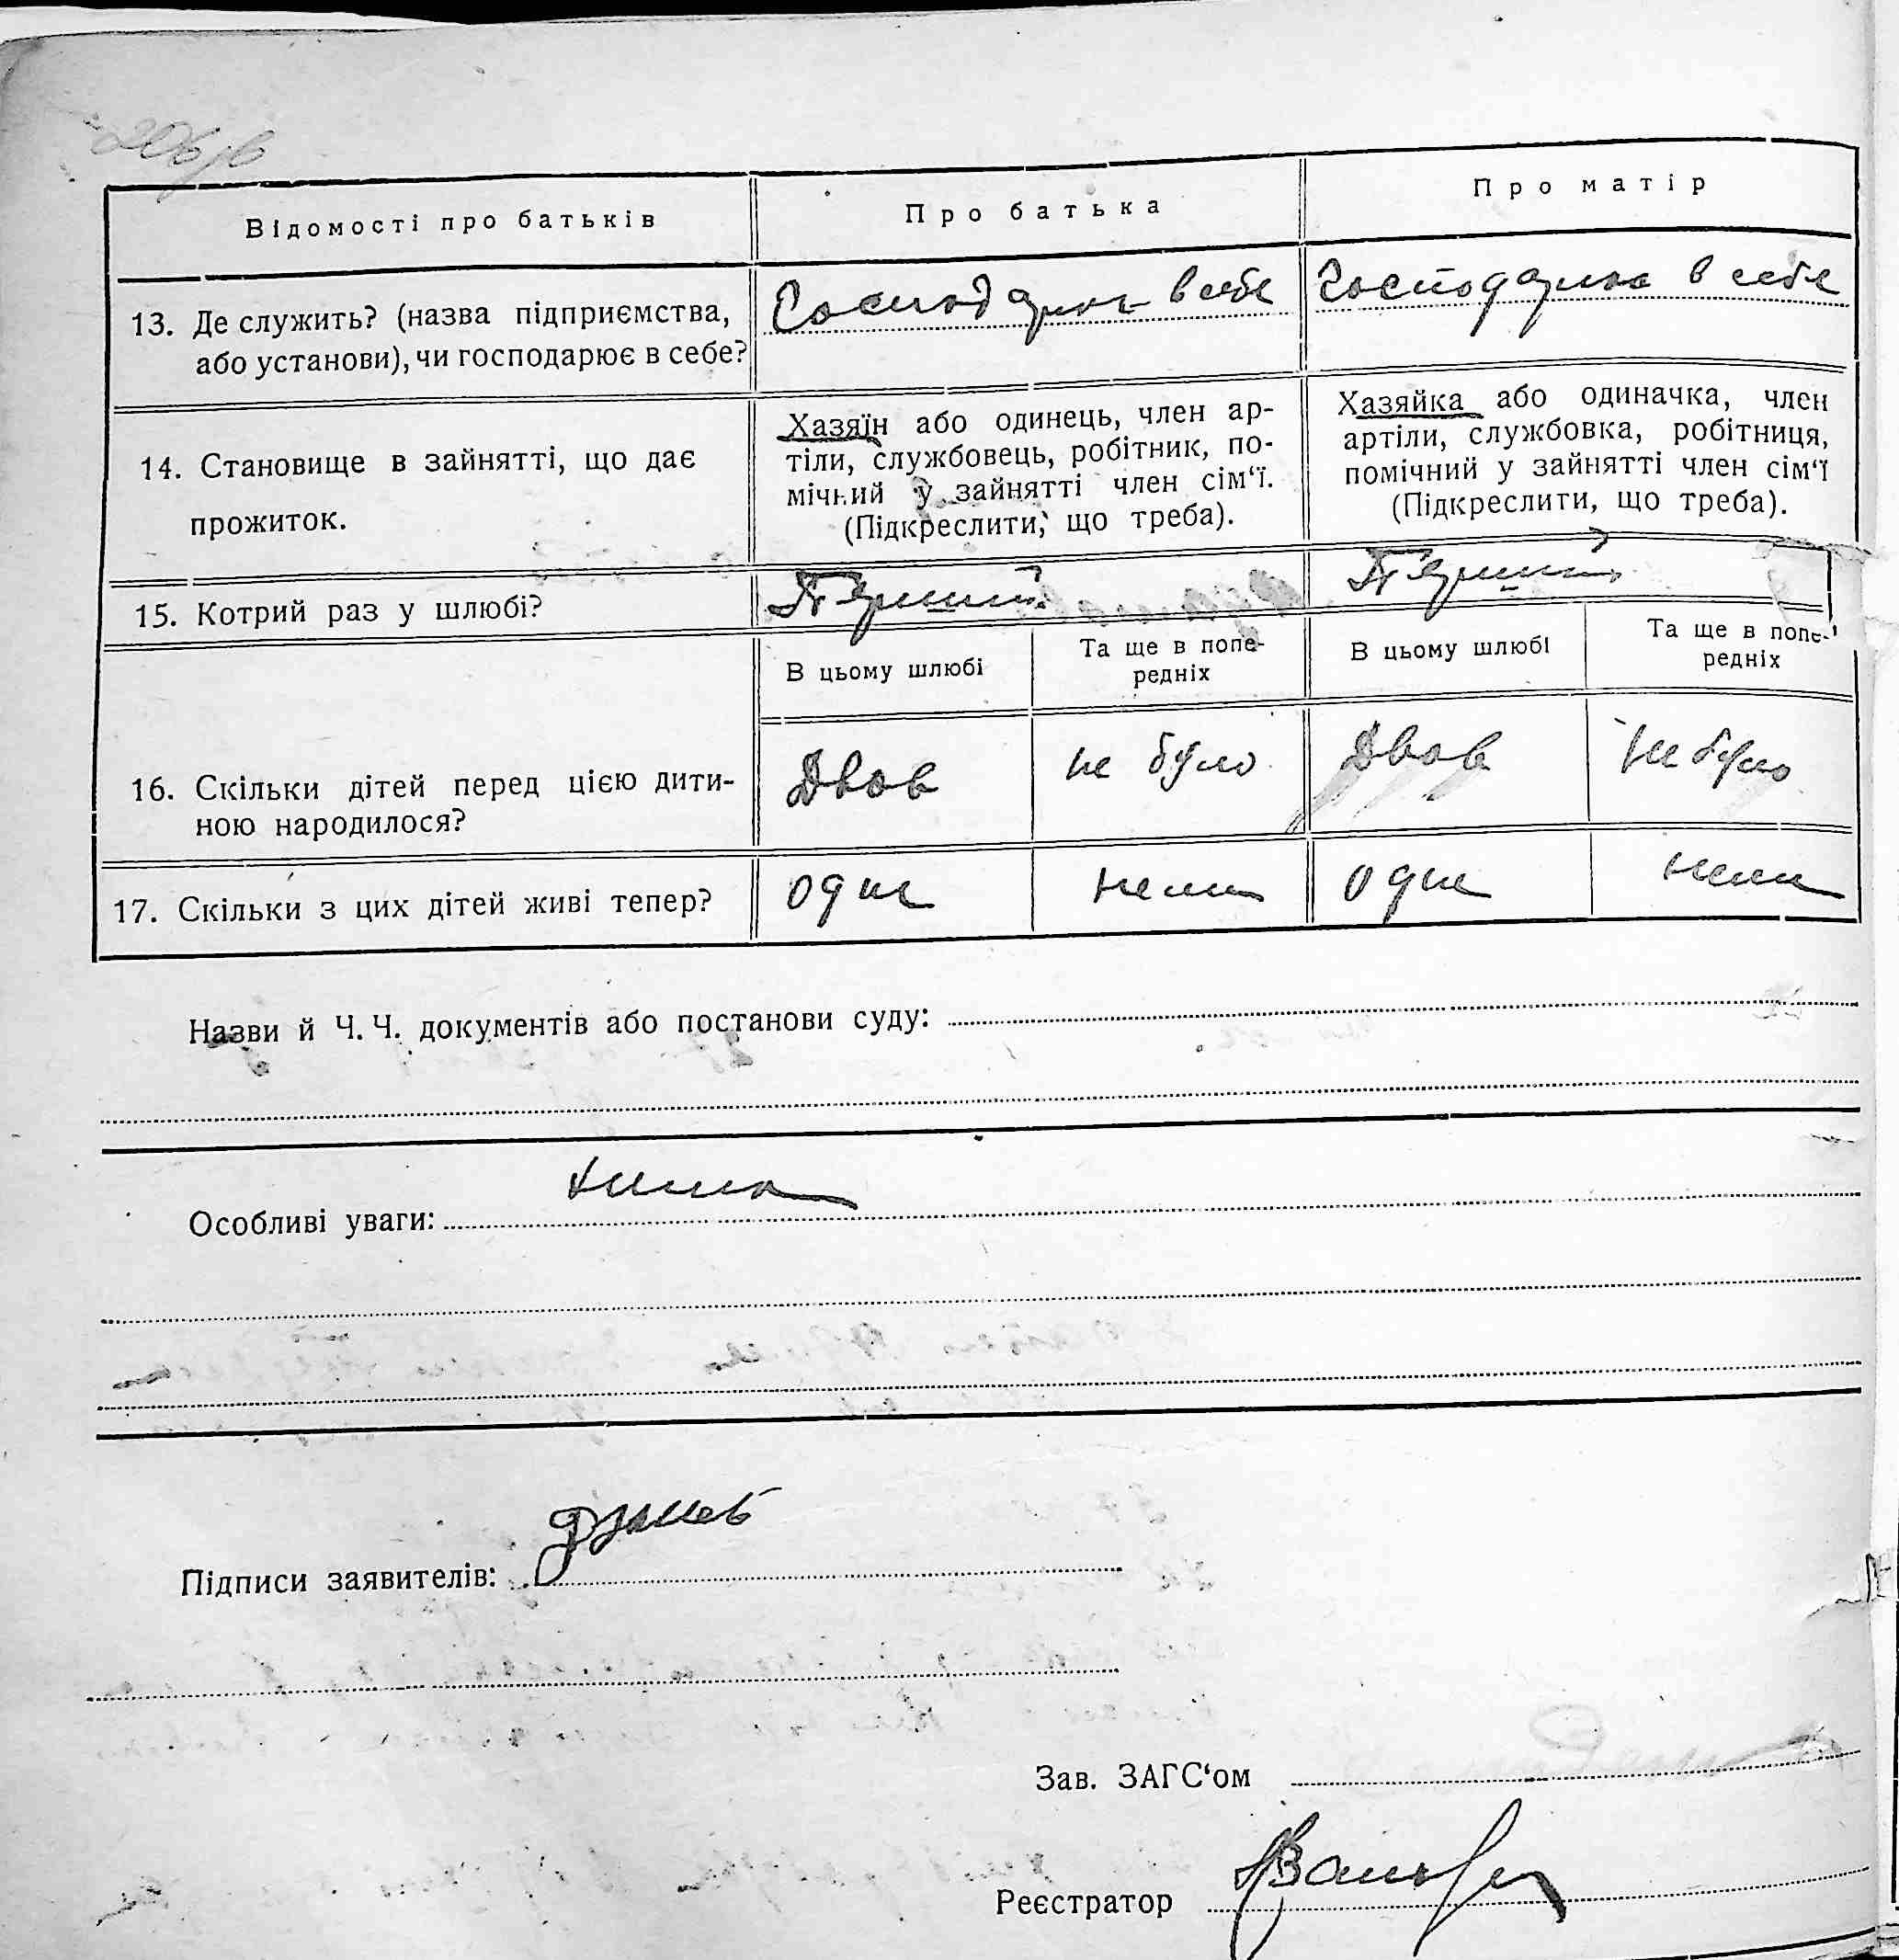 206 зв
Відомості про батьків
Про батька
Про матір
13. Де служить? (назва підприємства,
або установи), чи господарює в себе?
в себе
в себе
14. Становище в зайнятті, що дає
прожиток.
Хазяїн або одинець, член ар-
тіли, службовець, робітник, по-
мічний у зайнятті член сім‘ї.
(Підкреслити, що треба).
Хазяйка або одиначка, член
артіли, службовка, робітниця,
помічний у зайнятті член сім‘ї
(Підкреслити, що треба).
15. Котрий раз у шлюбі?
Перший
Перший
В цьому шлюбі
Та ще в попе-
редніх
В цьому шлюбі
Та ще в попе-
редніх
16. Скільки дітей перед цією дити-
ною народилося?
Двоє
не було
Двоє
не було
17. Скільки з цих дітей живі тепер?
одне
нема
одне
нема
Назви й Ч. Ч. документів або постанови суду:
Особливі уваги: нема
Підписи заявителів:
Зав. ЗАГС‘ом
Реєстратор